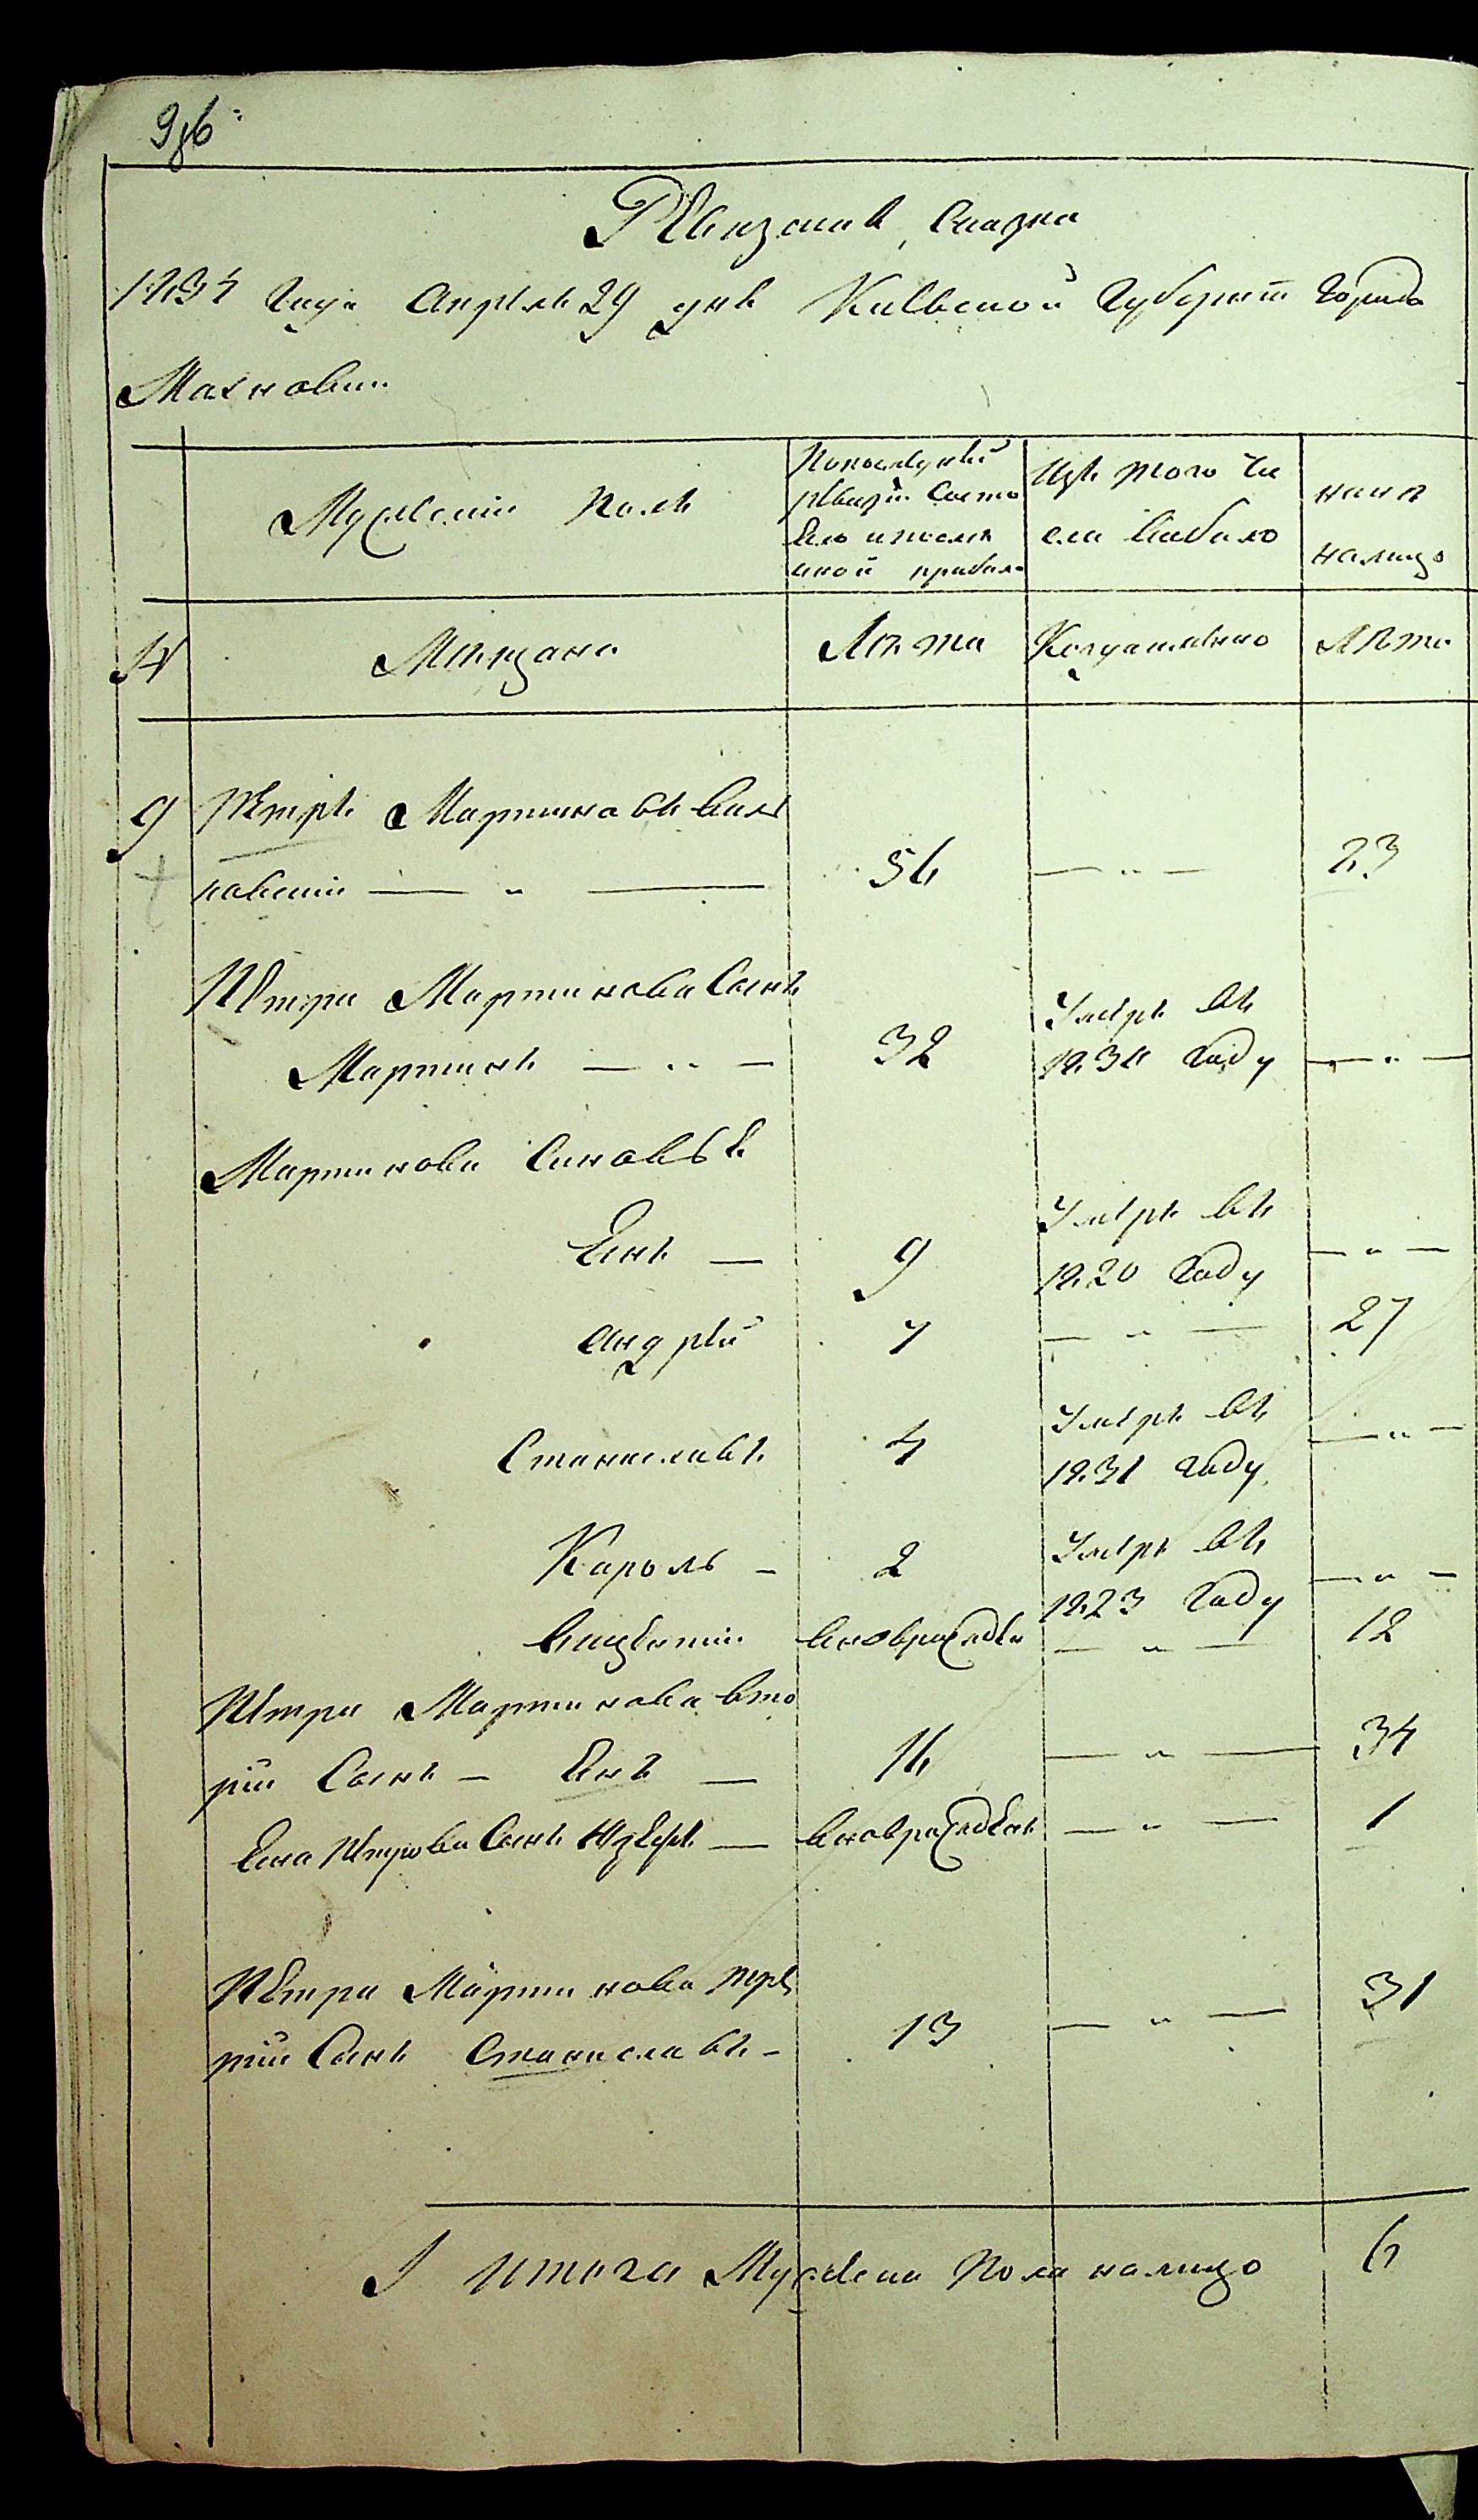 Ревизская Сказка
1834 Года Апреля 29 дня Киевской Губернии Города
Махновки
Мужеский Полъ
По последней
ревизіи Состо
яло и после
оной прибыло
Изъ того Чи
сла Выбыло
ныне
налицо
№
Мещане
Лѣта
Когда именно
Лѣта
9 Петръ Мартиновъ
56 — " — 73
Петра Мартинова Сынъ
Мартинъ — " — 32 Умеръ въ
1830 Году — " —
Мартинова Синовья
Янъ — 9 Умеръ въ
1820 Году — " —
Андрей 7 — " — 27
Станиславъ 4 Умеръ въ
1831 Году — " —
Кароль — 2 Умеръ въ
1823 Году — " —
Винцентій — " — 12
Петра Мартинова вто
рій Сынъ — Янъ — 16 — " — 34
Яна Петрова Сынъ Юзефъ — — " — 1
Петра Мартинова тре
тій Сынъ Станиславъ — 13 — " — 31
Итого Мужеска Пола налицо 6